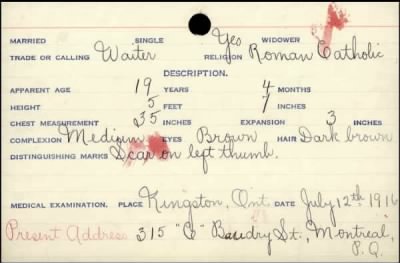 MARRIED SINGLE Yes WIDOWER
TRADE OR CALLING Waiter RELIGION Roman Catholic
DESCRIPTION.
APPARENT AGE 19 YEARS 4 MONTHS
HEIGHT 5 FEET 7 INCHES
CHEST MEASUREMENT 35 INCHES EXPANSION 3 INCHES
COMPLEXION Medium EYES Brown HAIR Dark brown
DISTINGUISHING MARKS Scar on left thumb.
MEDICAL EXAMINATION. PLACE Kingston, Ont. DATE July 12th 1916
Present Address 315 "C" Beudry St., Montreal,
P.Q.